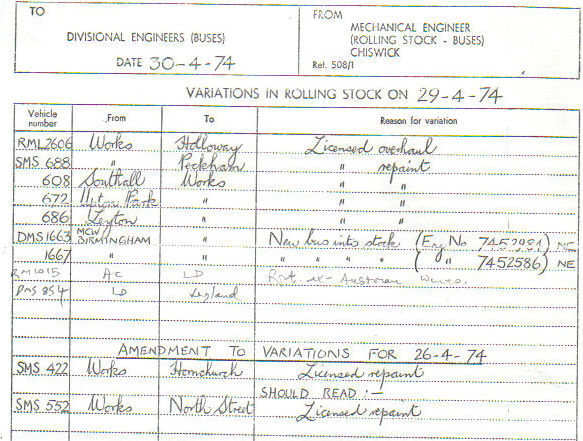 TO
DIVISIONAL ENGINEERS (BUSES)
DATE 30-4-74
FROM
MECHANICAL ENGINEER
(ROLLING STOCK - BUSES)
CHISWICK
Ref. 508/1
VARIATIONS IN ROLLING STOCK ON 29-4-74
Vehicle number From To Reason for variation
RML2606 Works Holloway Licensed overhaul
SMS 688 " Peckham " repaint
608 Southall Works " "
672 Upton Park " " "
686 Leyton " " "
DMS1663 MCW BIRMINGHAM " New bus into stock (Eng No 7452981) NE
1667 " " " " " " ( " 7452586) NE
RM1015 AC LD ex-Austrian
DMS 854 LD Leyland
AMENDMENT TO VARIATIONS FOR 26-4-74
SMS 422 Works Hornchurch Licensed repaint
SHOULD READ :-
SMS 552 Works North Street Licensed repaint